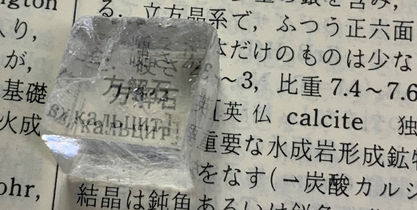 ngton
入り,
が,
基礎
火成
ohr,
の銀を含み,
る. 立方晶系で, ふつう正六面
体だけのものは少な
~3, 比重 7.4~7.6
方解石
[英 仏 calcite 独
кальцит]
重要な水成岩形成鉱
をなす(→炭酸カルシ
結晶は鈍角あるいは